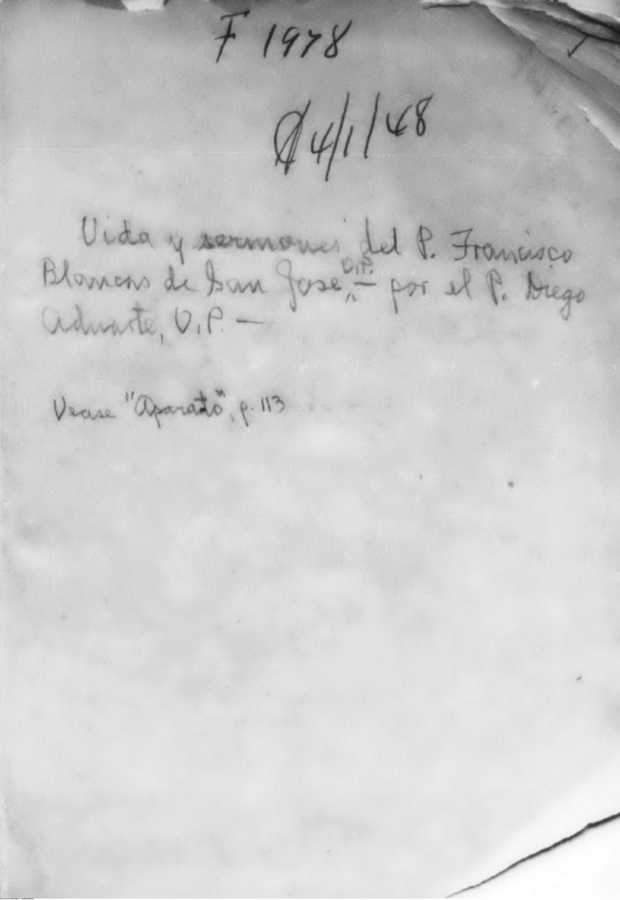 F 1978
4/1/48
Vida y sermones del P. Francisco
Blancas de San Jose, O.P. — por el P. Diego
Aduarte, O.P. —
Vease "Aparato", p. 113